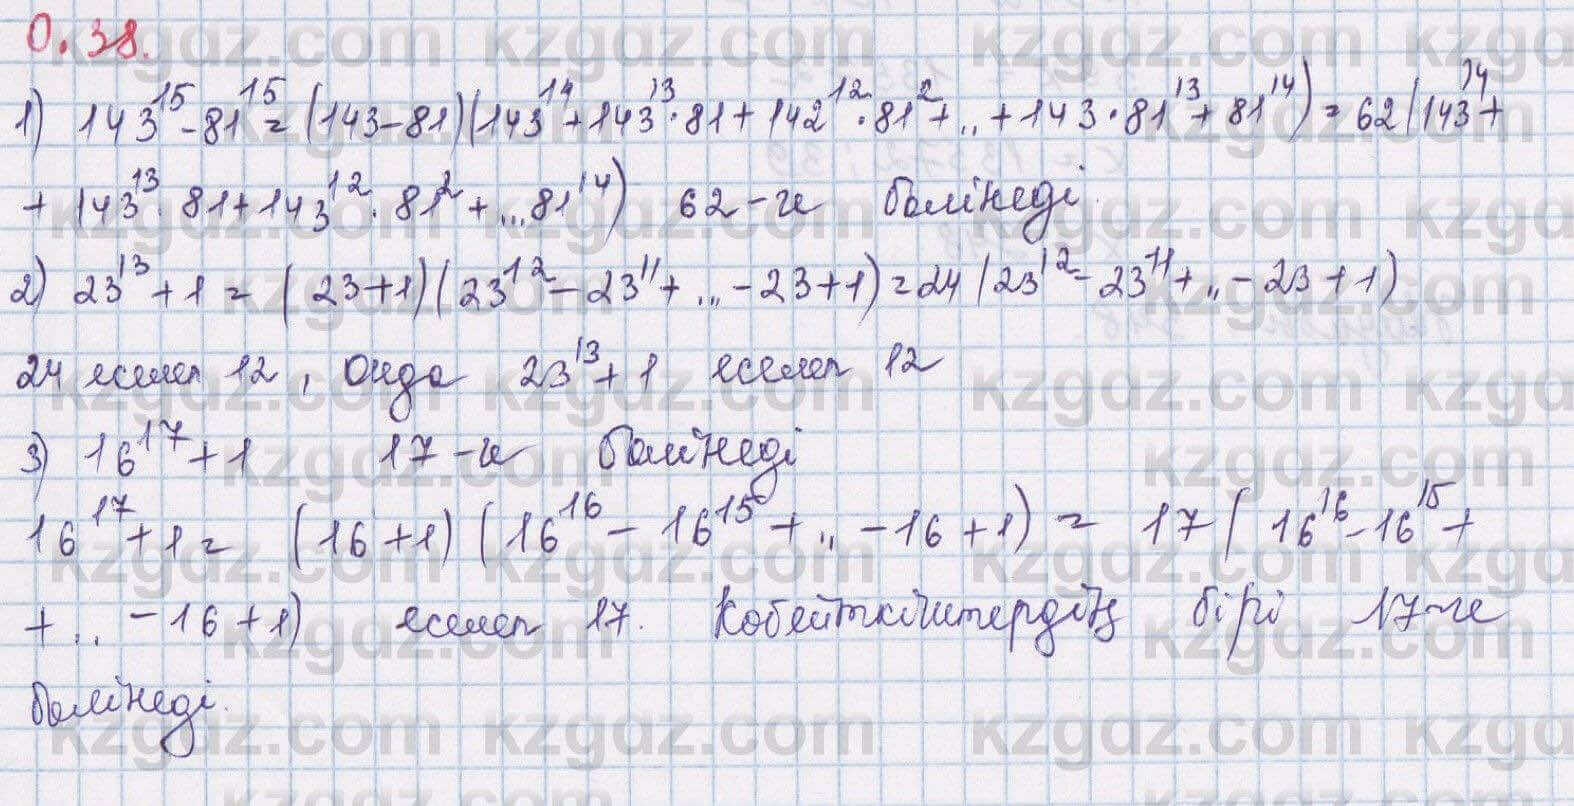 0.38.
1) 143¹⁵-81¹⁵=(143-81)(143¹⁴+143¹³·81+142¹²·81²+..+143·81¹³+81¹⁴)=62(143¹⁴+
+143¹³·81+143¹²·81²+...81¹⁴) 62-ге бөлінеді.
2) 23¹³+1=(23+1)(23¹²-23¹¹+...-23+1)=24(23¹²-23¹¹+..-23+1)
24 еселеп 12, Онда 23¹³+1 еселеп 12
3) 16¹⁷+1 17-ге бөлінеді
16¹⁷+1= (16+1)(16¹⁶-16¹⁵+..-16+1)= 17(16¹⁶-16¹⁵+
+..-16+1) еселеп 17. Көбейткіштердің бірі 17-ге
бөлінеді.
kzgdz.com